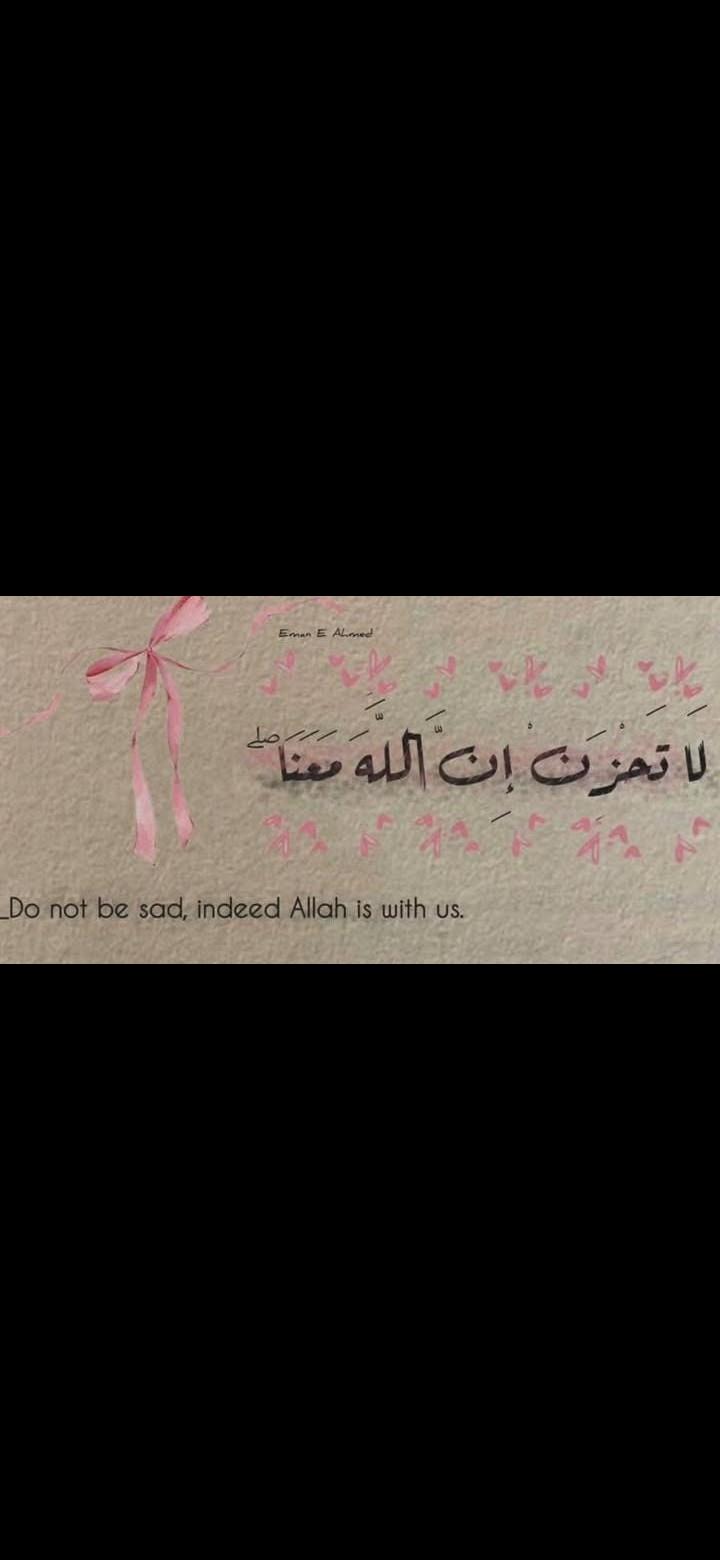 Eman E Ahmed
لَا تَحْزَنْ إِنَّ اللَّهَ مَعَنَا ۖ
_Do not be sad, indeed Allah is with us.